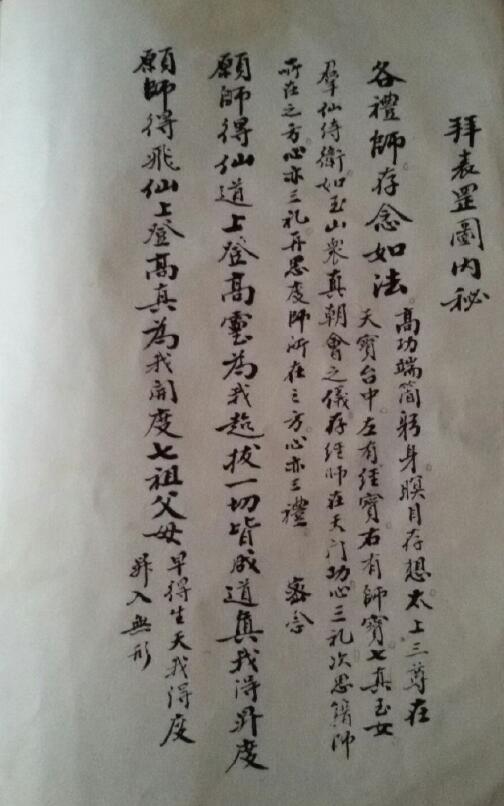 拜表罡圖內秘
各禮師存念如法。高功端簡躬身瞑目存想太上三尊在
天寶台中左有經寶右有師寶七真玉女
羣仙侍衛如玉山衆真朝會之儀存經師在天门功心三礼次思籍師
所在之方心亦三礼再思度師所在之方心亦三禮　密念
願師得仙道上登高靈為我超拔一切皆成道真我得昇度
願師得飛仙上登高真為我開度七祖父母早得生天我得度
昇入無形